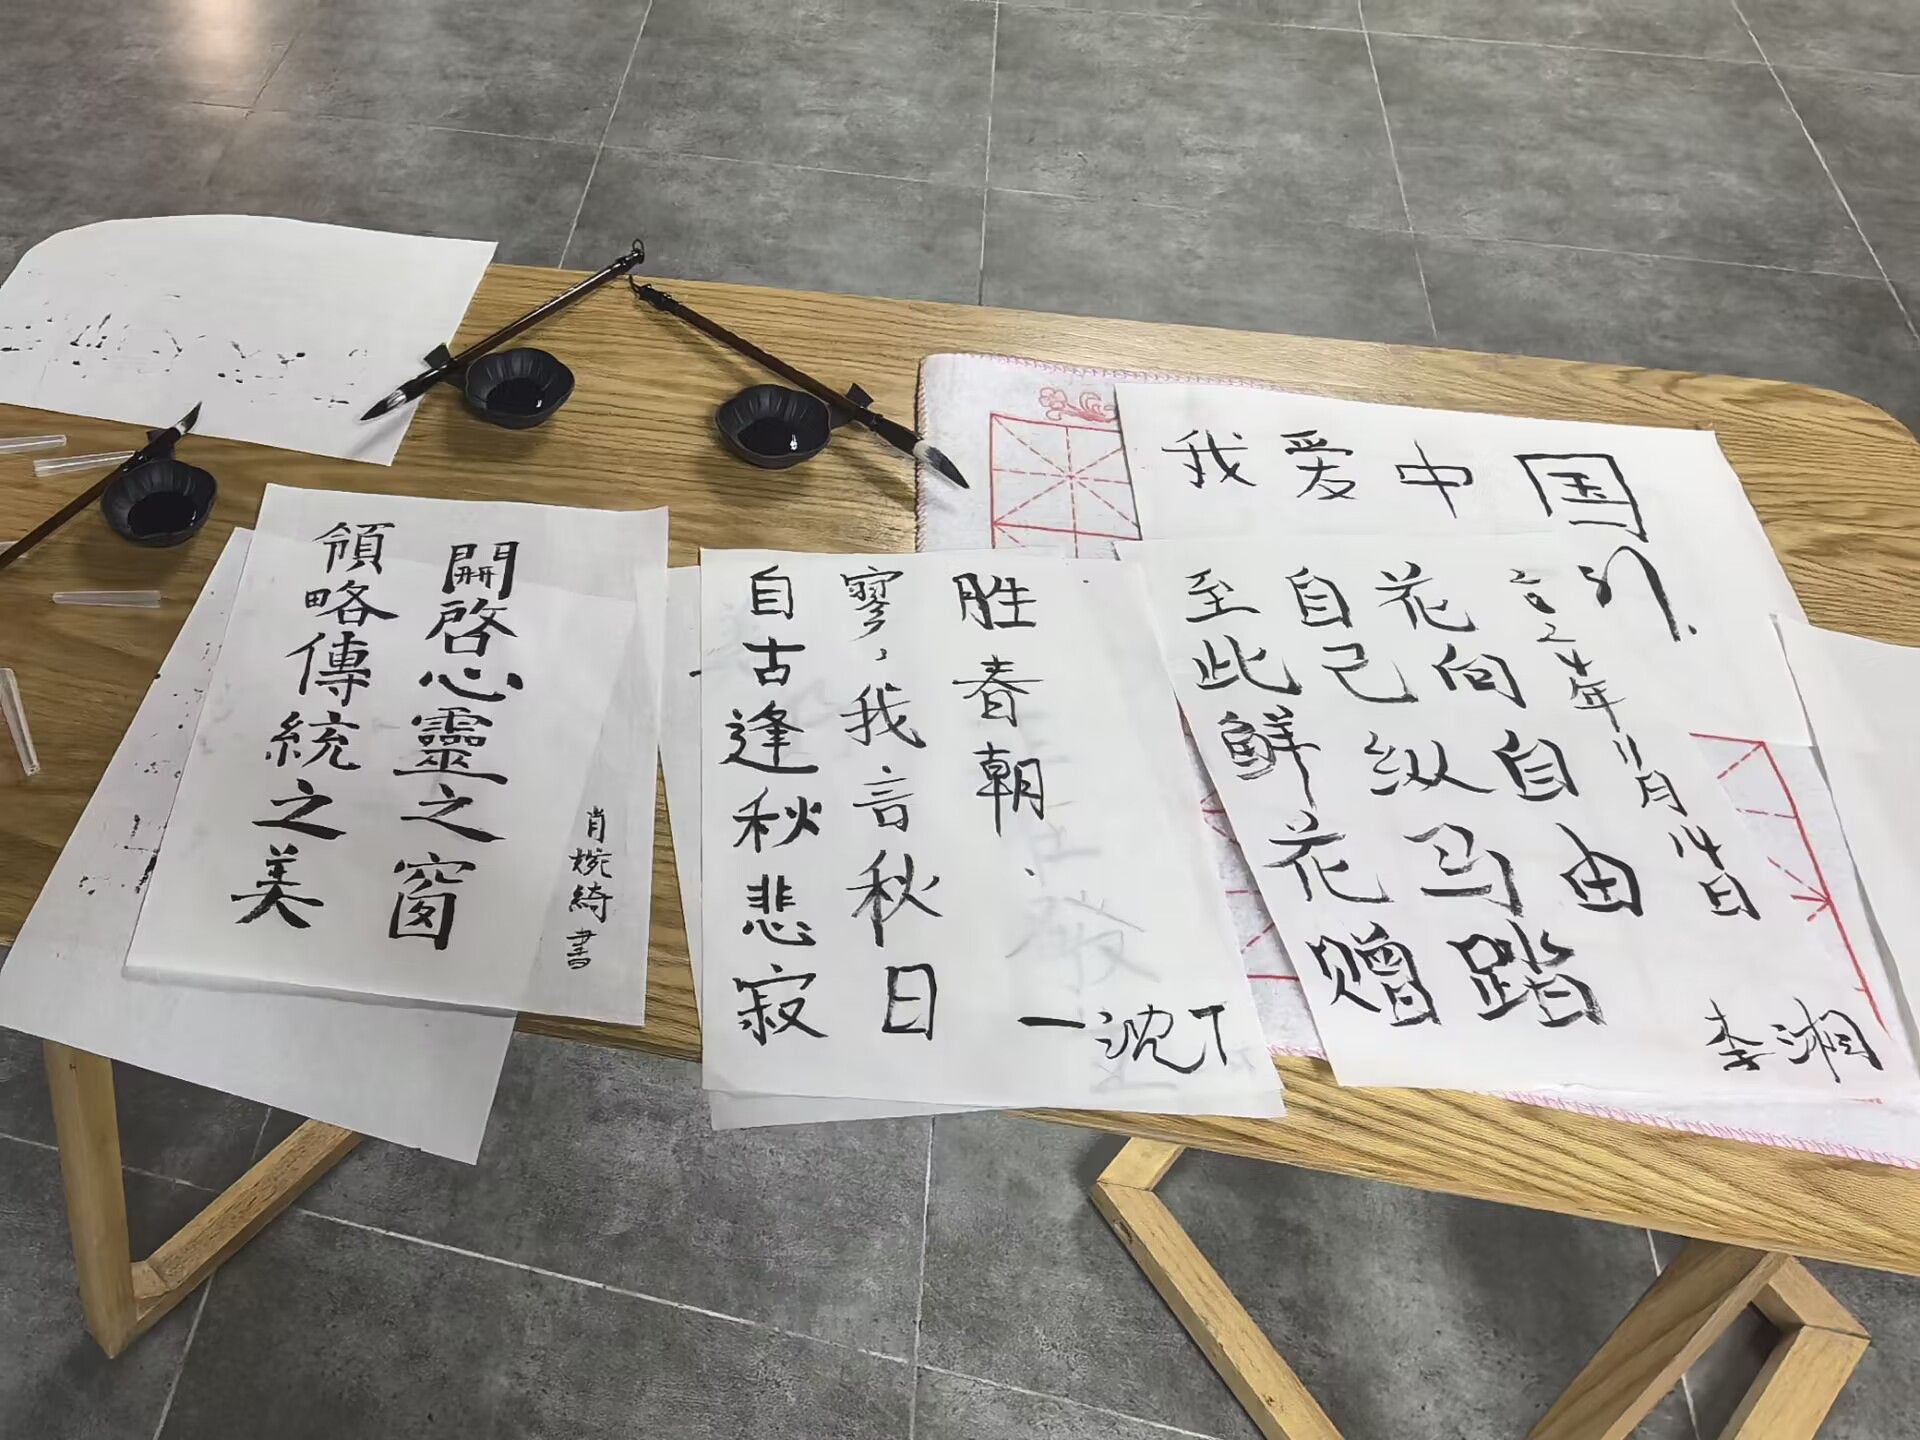 開啓心靈之窗
領略傳統之美
肖婉綺書
自古逢秋悲寂
寥，我言秋日
胜春朝
一沈丁
我爱中国
至此鲜花赠
自己纵马踏
花向自由
二024年11月14日
李湘